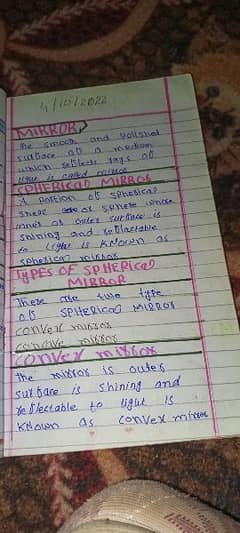 4/10/2022
MIRROR
The smooth and polished
surface of a medium
which reflects rays of
light is called mirror
SPHERICAL MIRROR
A portion of spherical
sphere whose
inner or outer surface is
shining and reflectable
to light is known as
spherical mirror
TYPES OF SPHERICAL
MIRROR
There are two type
of SPHERICAL MIRROR
convex mirror
concave mirror
convex mirror
The mirror is outer
surface is shining and
reflectable to light is
known as convex mirror